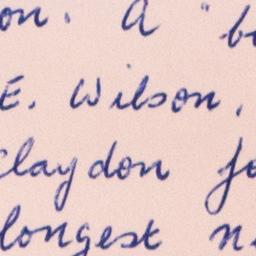 on. A "b
E. Wilson,
Claydon fo
longest n